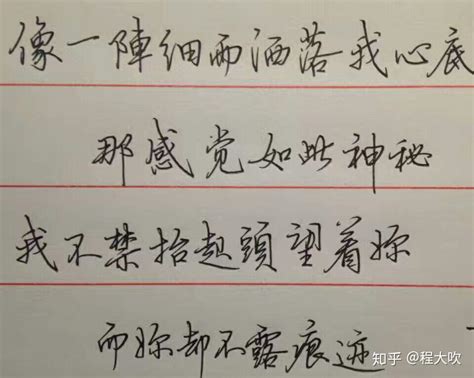 像一陣细雨洒落我心底
那感觉如此神秘
我不禁抬起頭望着妳
而妳却不露痕迹
知乎 @程大吹